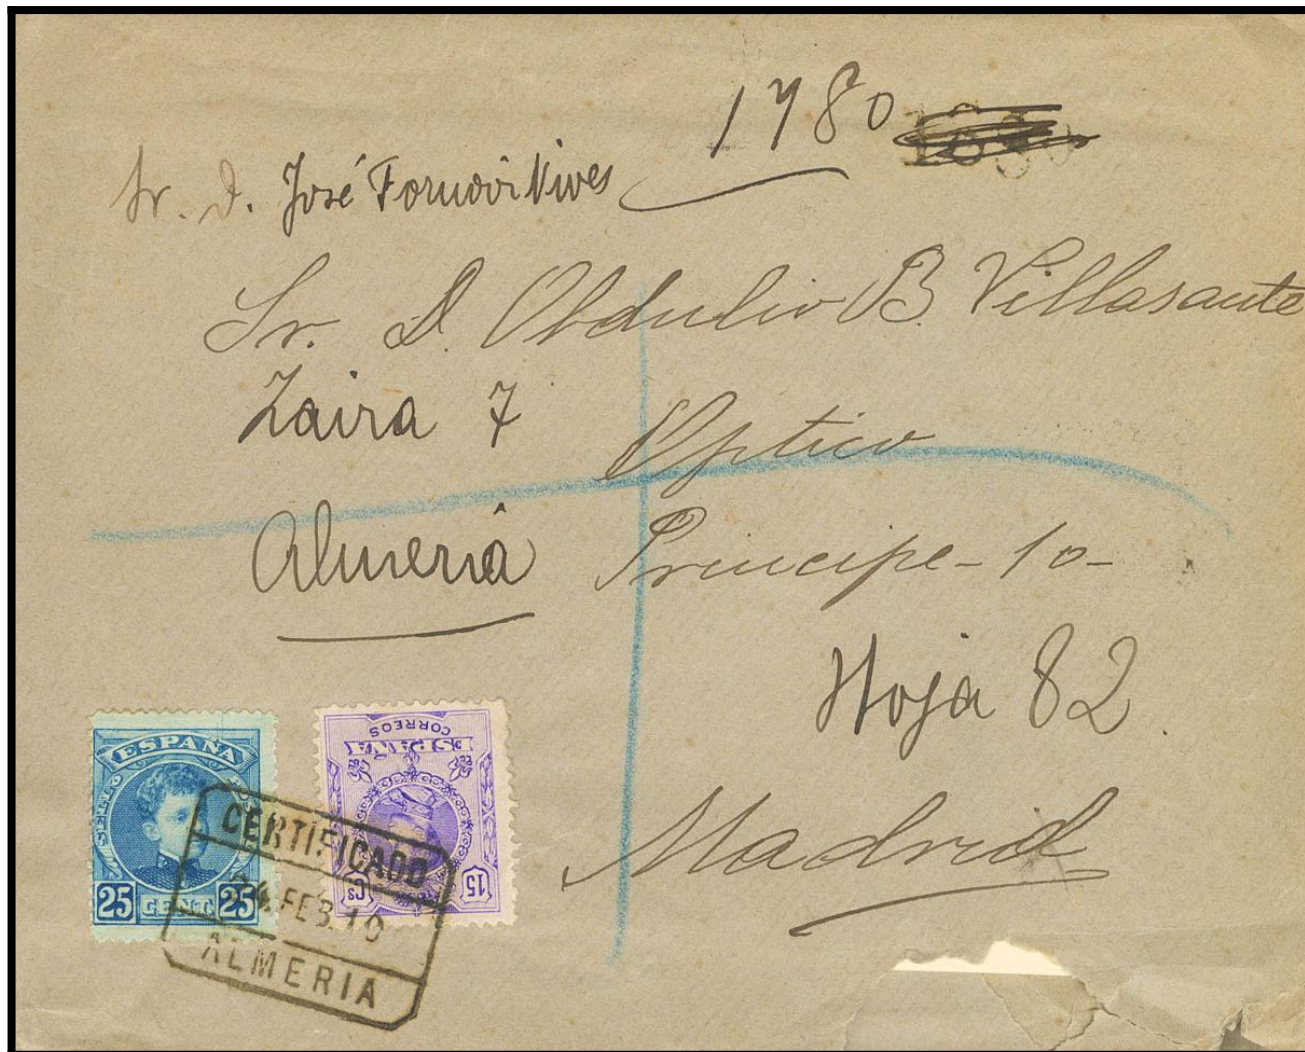 1780
Sr. D. José Fornovi Vives
Sr. D. Obdulio B. Villasante
Zaira 7
Optico
Almeria
Principe - 10 -
Hoja 82
Madrid
ESPAÑA
SELLO
25 CENT. 25
CORREOS
ESPAÑA
15 Cs
CERTIFICADO
24 FEB. 10
ALMERIA